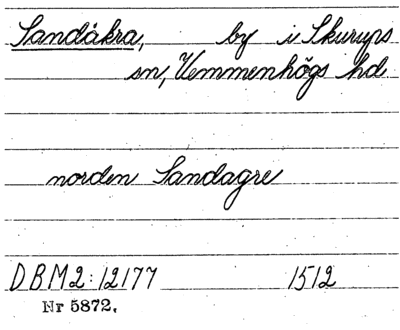 Sandåkra, by i Skurups
sn, Vemmenhögs hd
norden Sandagre
DBM2:12177 1512
Nr 5872.